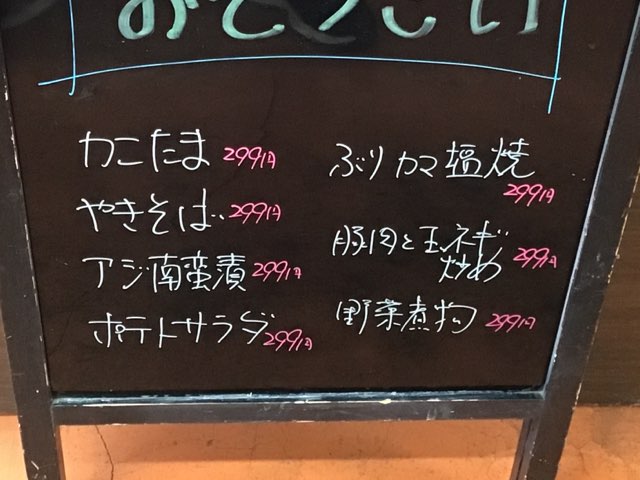 おそうざい
かこたま 299円
やきそば 299円
アジ南蛮漬 299円
ポテトサラダ 299円
ぶりカマ塩焼
299円
豚肉と玉ネギ 299円
炒め
野菜煮物 299円